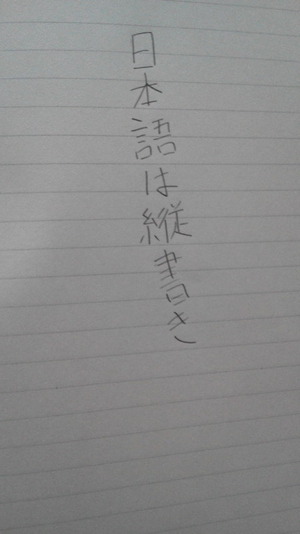 日本語は縦書き